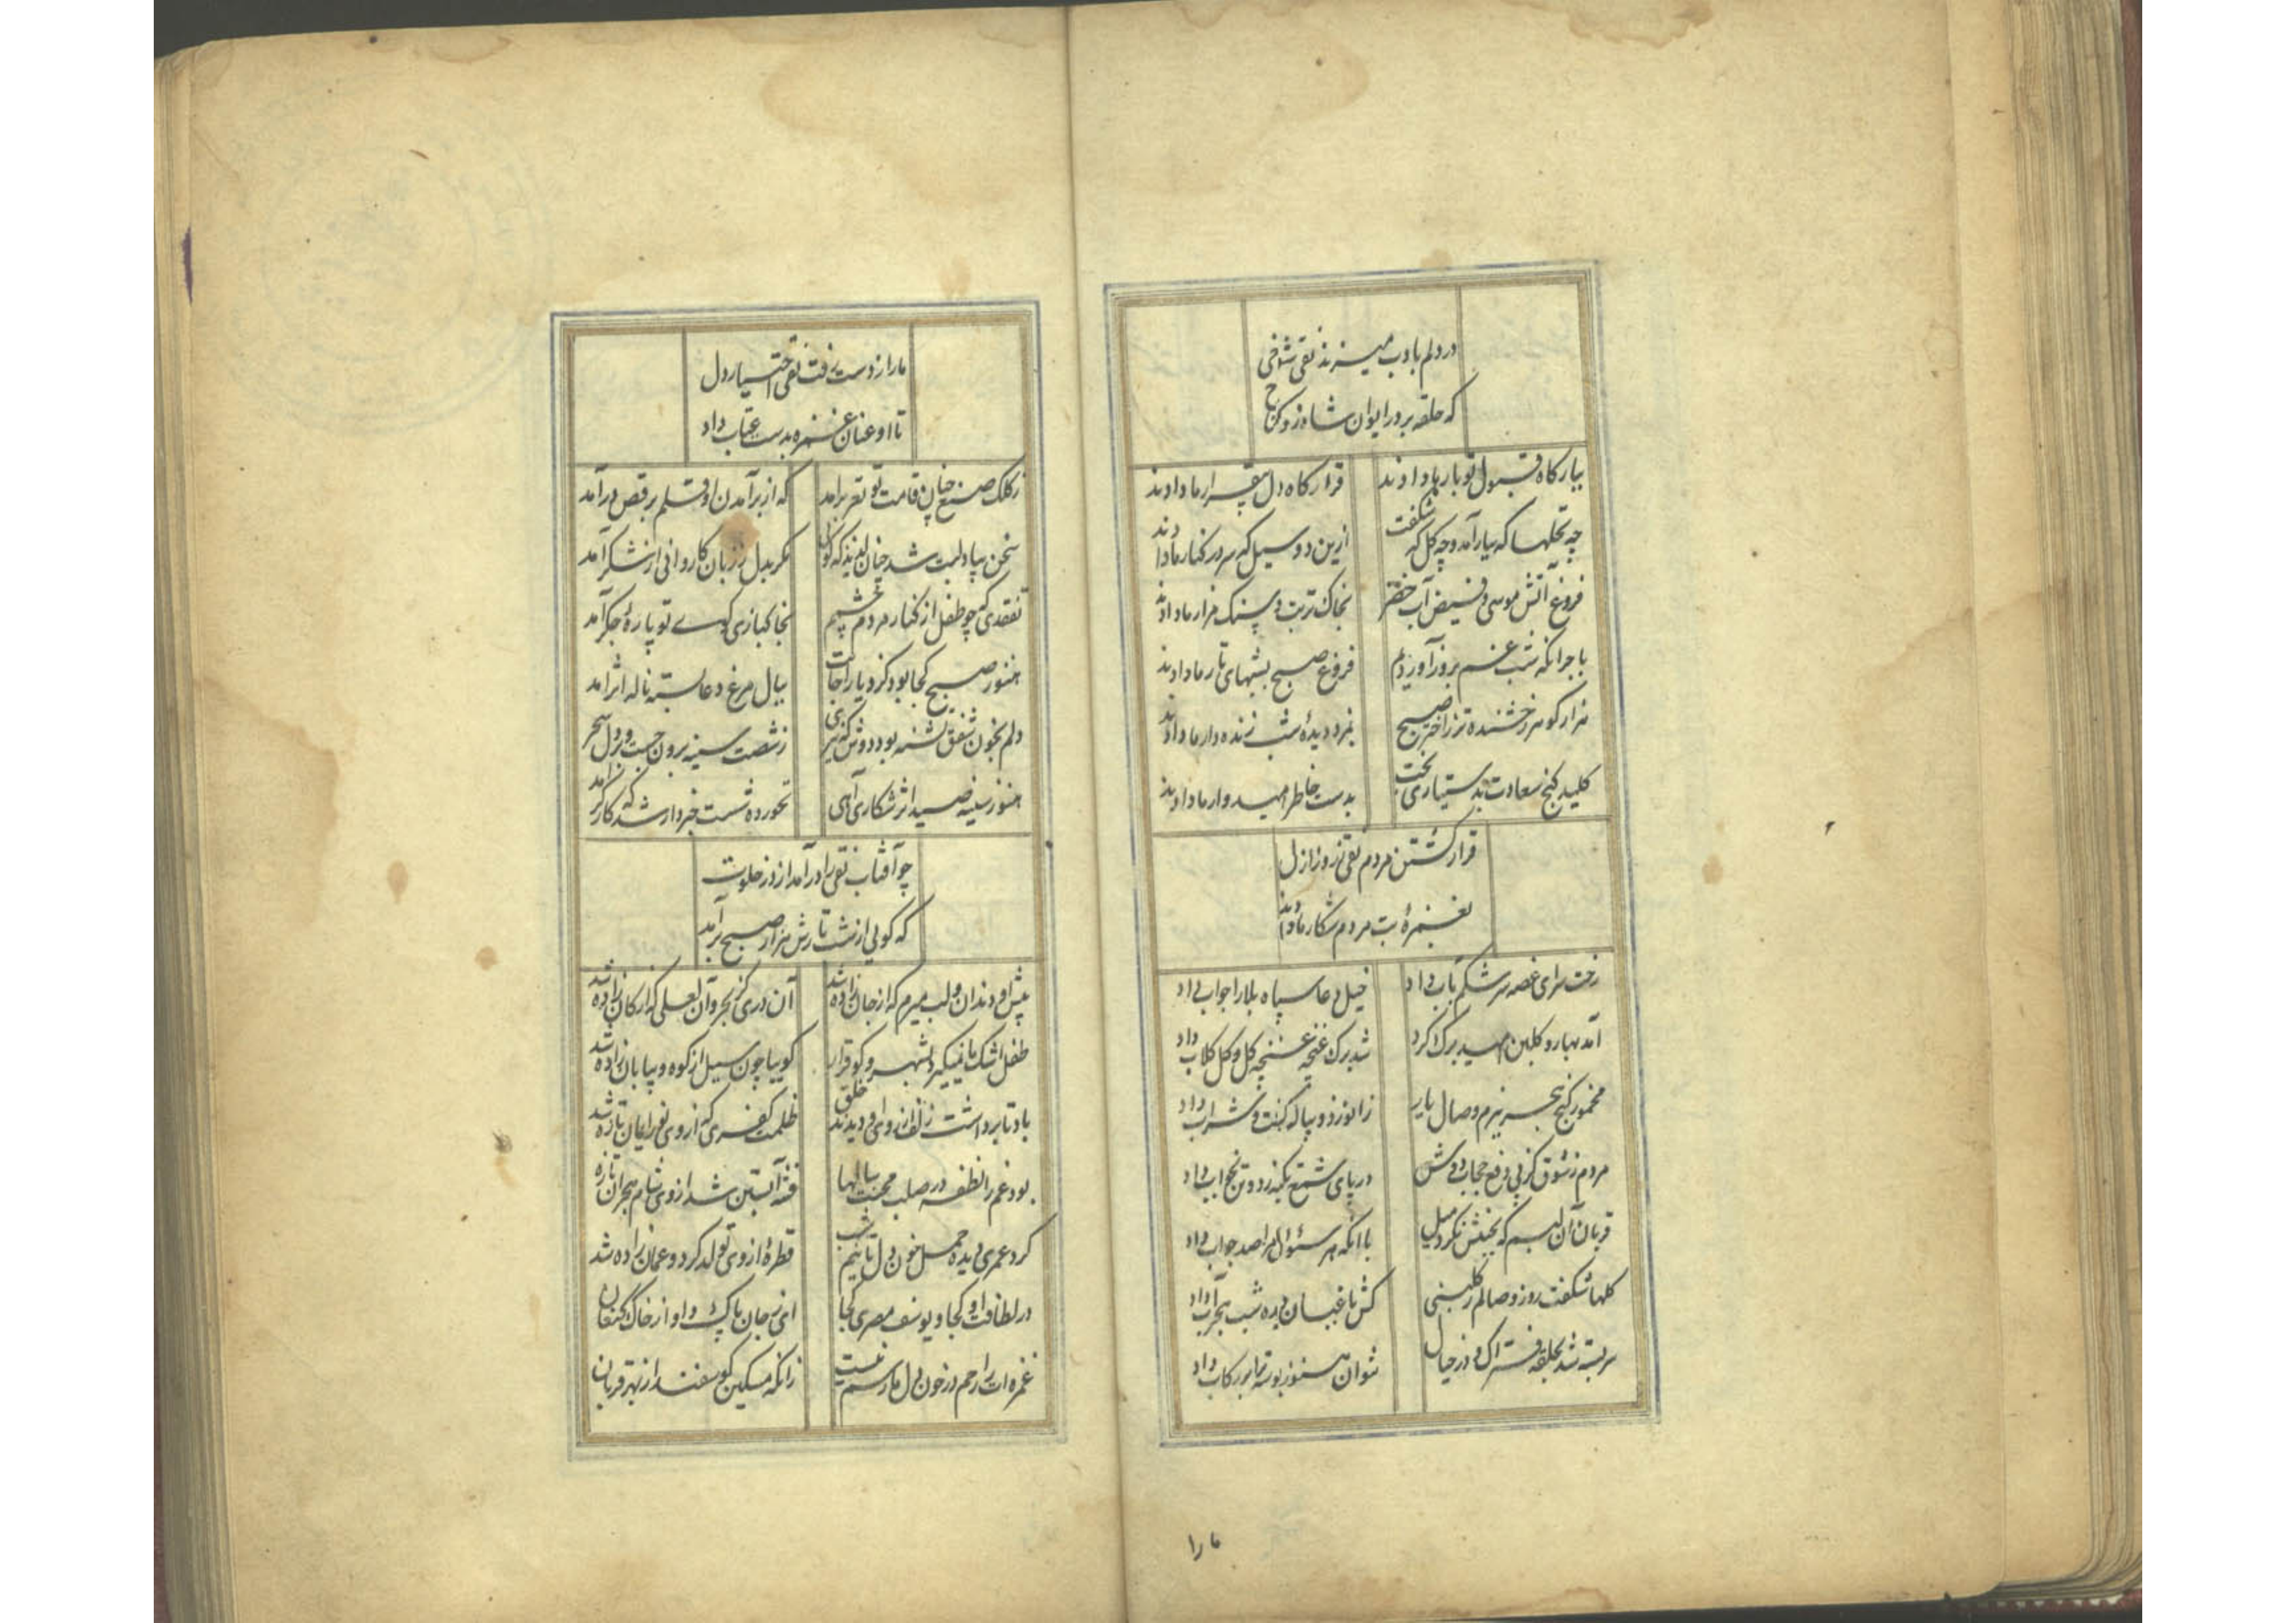 در دلم بادب میزند نقی شوخی
که حلقه بر در ایوان شاه زد و کن
ببارگاه قبول تو بار ما دادند
قرارگاه دل بیقرار ما دادند
چه نخلها که ببار آمد و چه گل که شکفت
ازین دو سیل که سر در کنار ما دادند
فروغ آتش موسی و فیض آب خضر
بخاک تربت و سنگ مزار ما دادند
باجر انکه شب غم بروز آوردیم
فروغ صبح بشبهای تار ما دادند
هزار گوهر رخشنده تر ز اختر صبح
بمزد دیدهٔ شب زنده دار ما دادند
کلید گنج سعادت بدستیاری بخت
بدست خاطر امیدوار ما دادند
قرار کشتن مردم نقی ز روز ازل
بغمزهٔ بت مردم شکار ما دادند
رخت سرای غصه سرشکم بآب داد
خیل دعا سپاه بلا را جواب داد
آمد بهار و گلبن امید برگ کرد
شد برگ غنچه غنچه گل و گل گلاب داد
مخمور کنج هجر ببزم وصال یار
زانو زد و پیاله گرفت و شراب داد
مردم ز شوق کز پی رفع حجاب دوش
در پای شمع تکیه زد و تن بخواب داد
قربان آن لبم که بخشش نکرد میل
با انکه هر سئوال مرا صد جواب داد
گلها شکفت روز وصالم ز گلبنی
کش باغبان دیده شب هجر آب داد
سر بسته شد بحلقه فتراک و در خیال
نتوان هنوز بوسه ترا بر رکاب داد
ما را
ما را ز دست رفت نقی اختیار دل
تا او عنان غمزه بدست عتاب داد
ز کلک صنع چنان قامت تو نغز برآمد
که از برآمدن او قلم برقص درآمد
سخن بیاد لبت شد چنان لذیذ که گوئی
مگر بدل ز زبان کاروانی از شکر آمد
تفقدی که چو طفل از کنار مردم چشمم
بخاکبازی کوی تو پارهٔ جگر آمد
هنوز صبح کجا بود کز دیار اجابت
ببال مرغ دعا بسته ناله اثر آمد
دلم بخون شفق تشنه بود دوش که تیری
ز شصت سینه برون جست و بر دل سحر آمد
هنوز سینه صید اثر شکاری آهی
نخورده شست خبردار شد که کارگر آمد
چو آفتاب نقی را درآمد از در خلوت
که گویی از شب تارش هزار صبح برآمد
پیش او دندان و لب میرم که از جان زاده شد
آن دری کز بحر و آن لعلی که از کان زاده شد
طفل اشک ما نمیگیرد بشهر و کو قرار
گوییا چون سیل از کوه و بیابان زاده شد
باد تا برداشت زلف از روی او دیدند خلق
ظلمت کفری که از وی نور ایمان تازه شد
بود غم را نطفه در صلب محبت سالها
فتنه آبستن شد از وی شام هجران تازه
کرد عمری دیده حمل خون دل تا نیم شب
قطرهٔ از وی تولد کرد و عمان زاده شد
در لطافت او کجا و یوسف مصری کجا
این ز جان پاک شد و او از خاک کنعان
غمزه ات را رحم در خون دل ما رسم نیست
زانکه مسکین گوسفند از بهر قربان